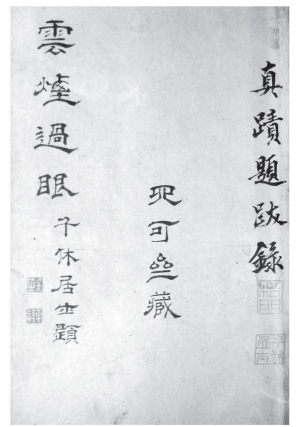 真蹟題跋錄
可藏
雲煙過眼
千休居士題